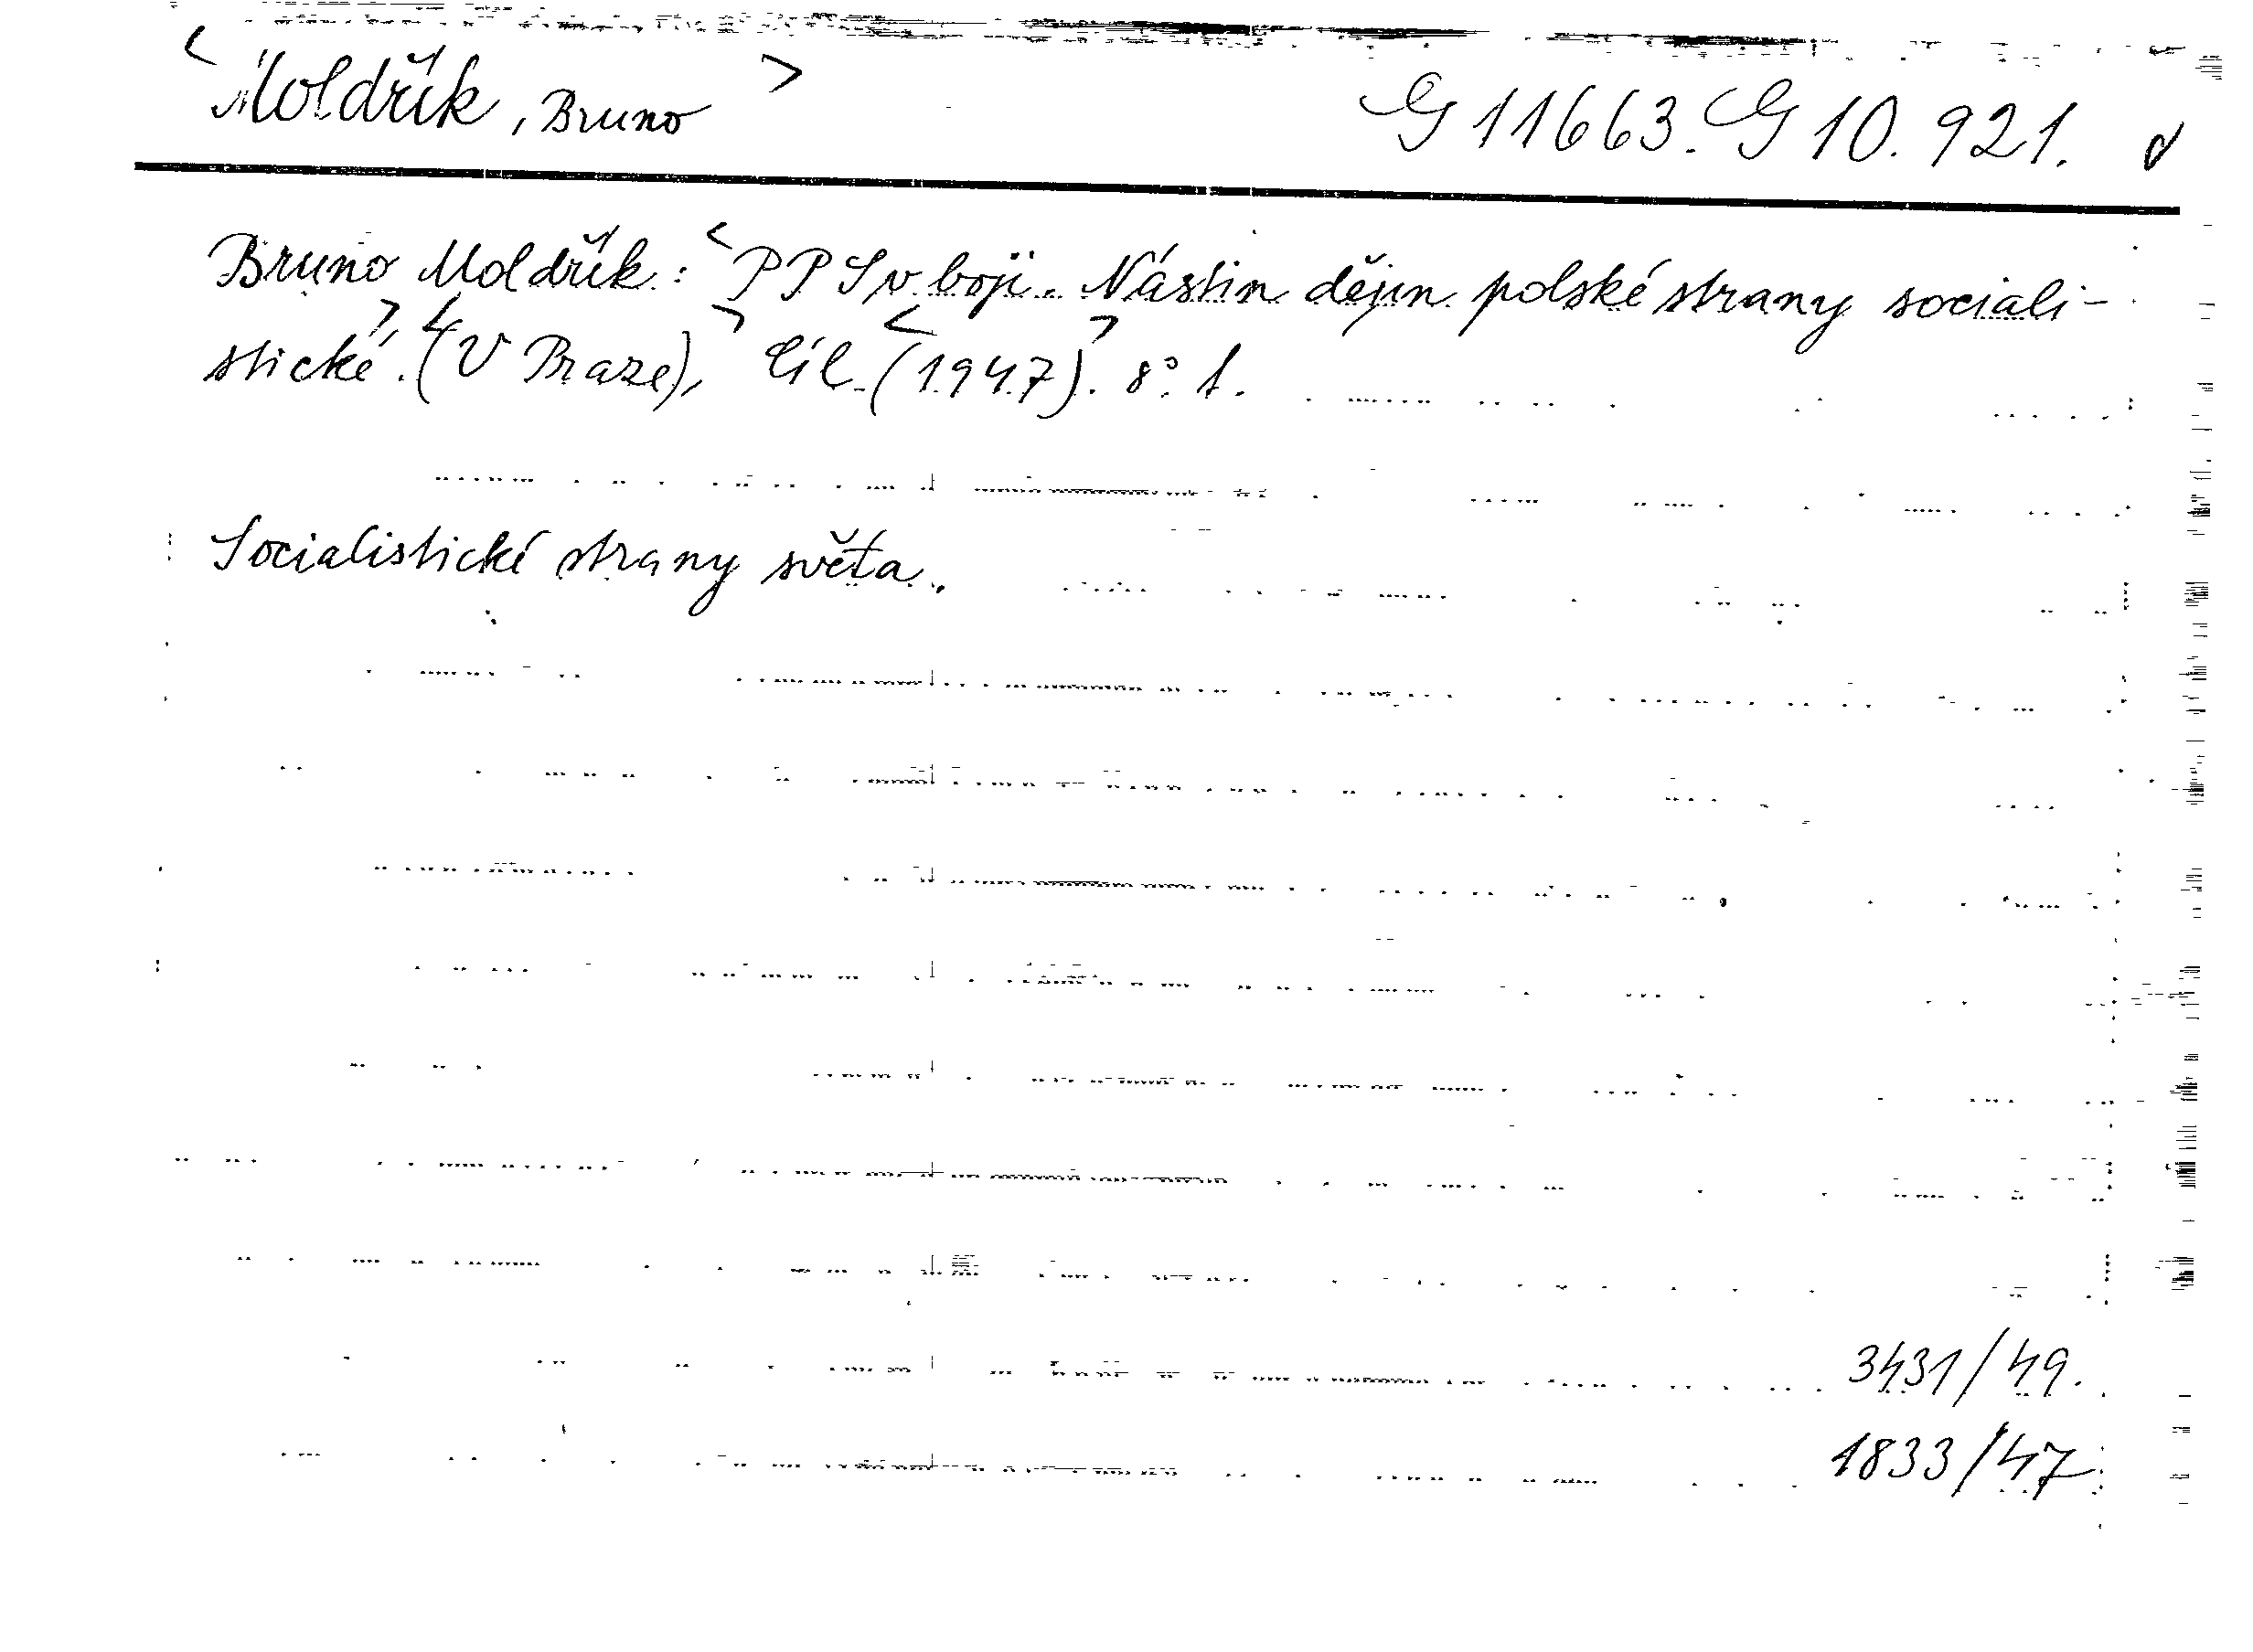 <Moldřík, Bruno> G 11663. G 10.921.
Bruno Moldřík: <PPS v boji. Nástin dějin polské strany sociali-
stické>. <(V Praze),> Cíl <(1947)>. 8°.
Socialistické strany světa.
3431/49.
1833/47